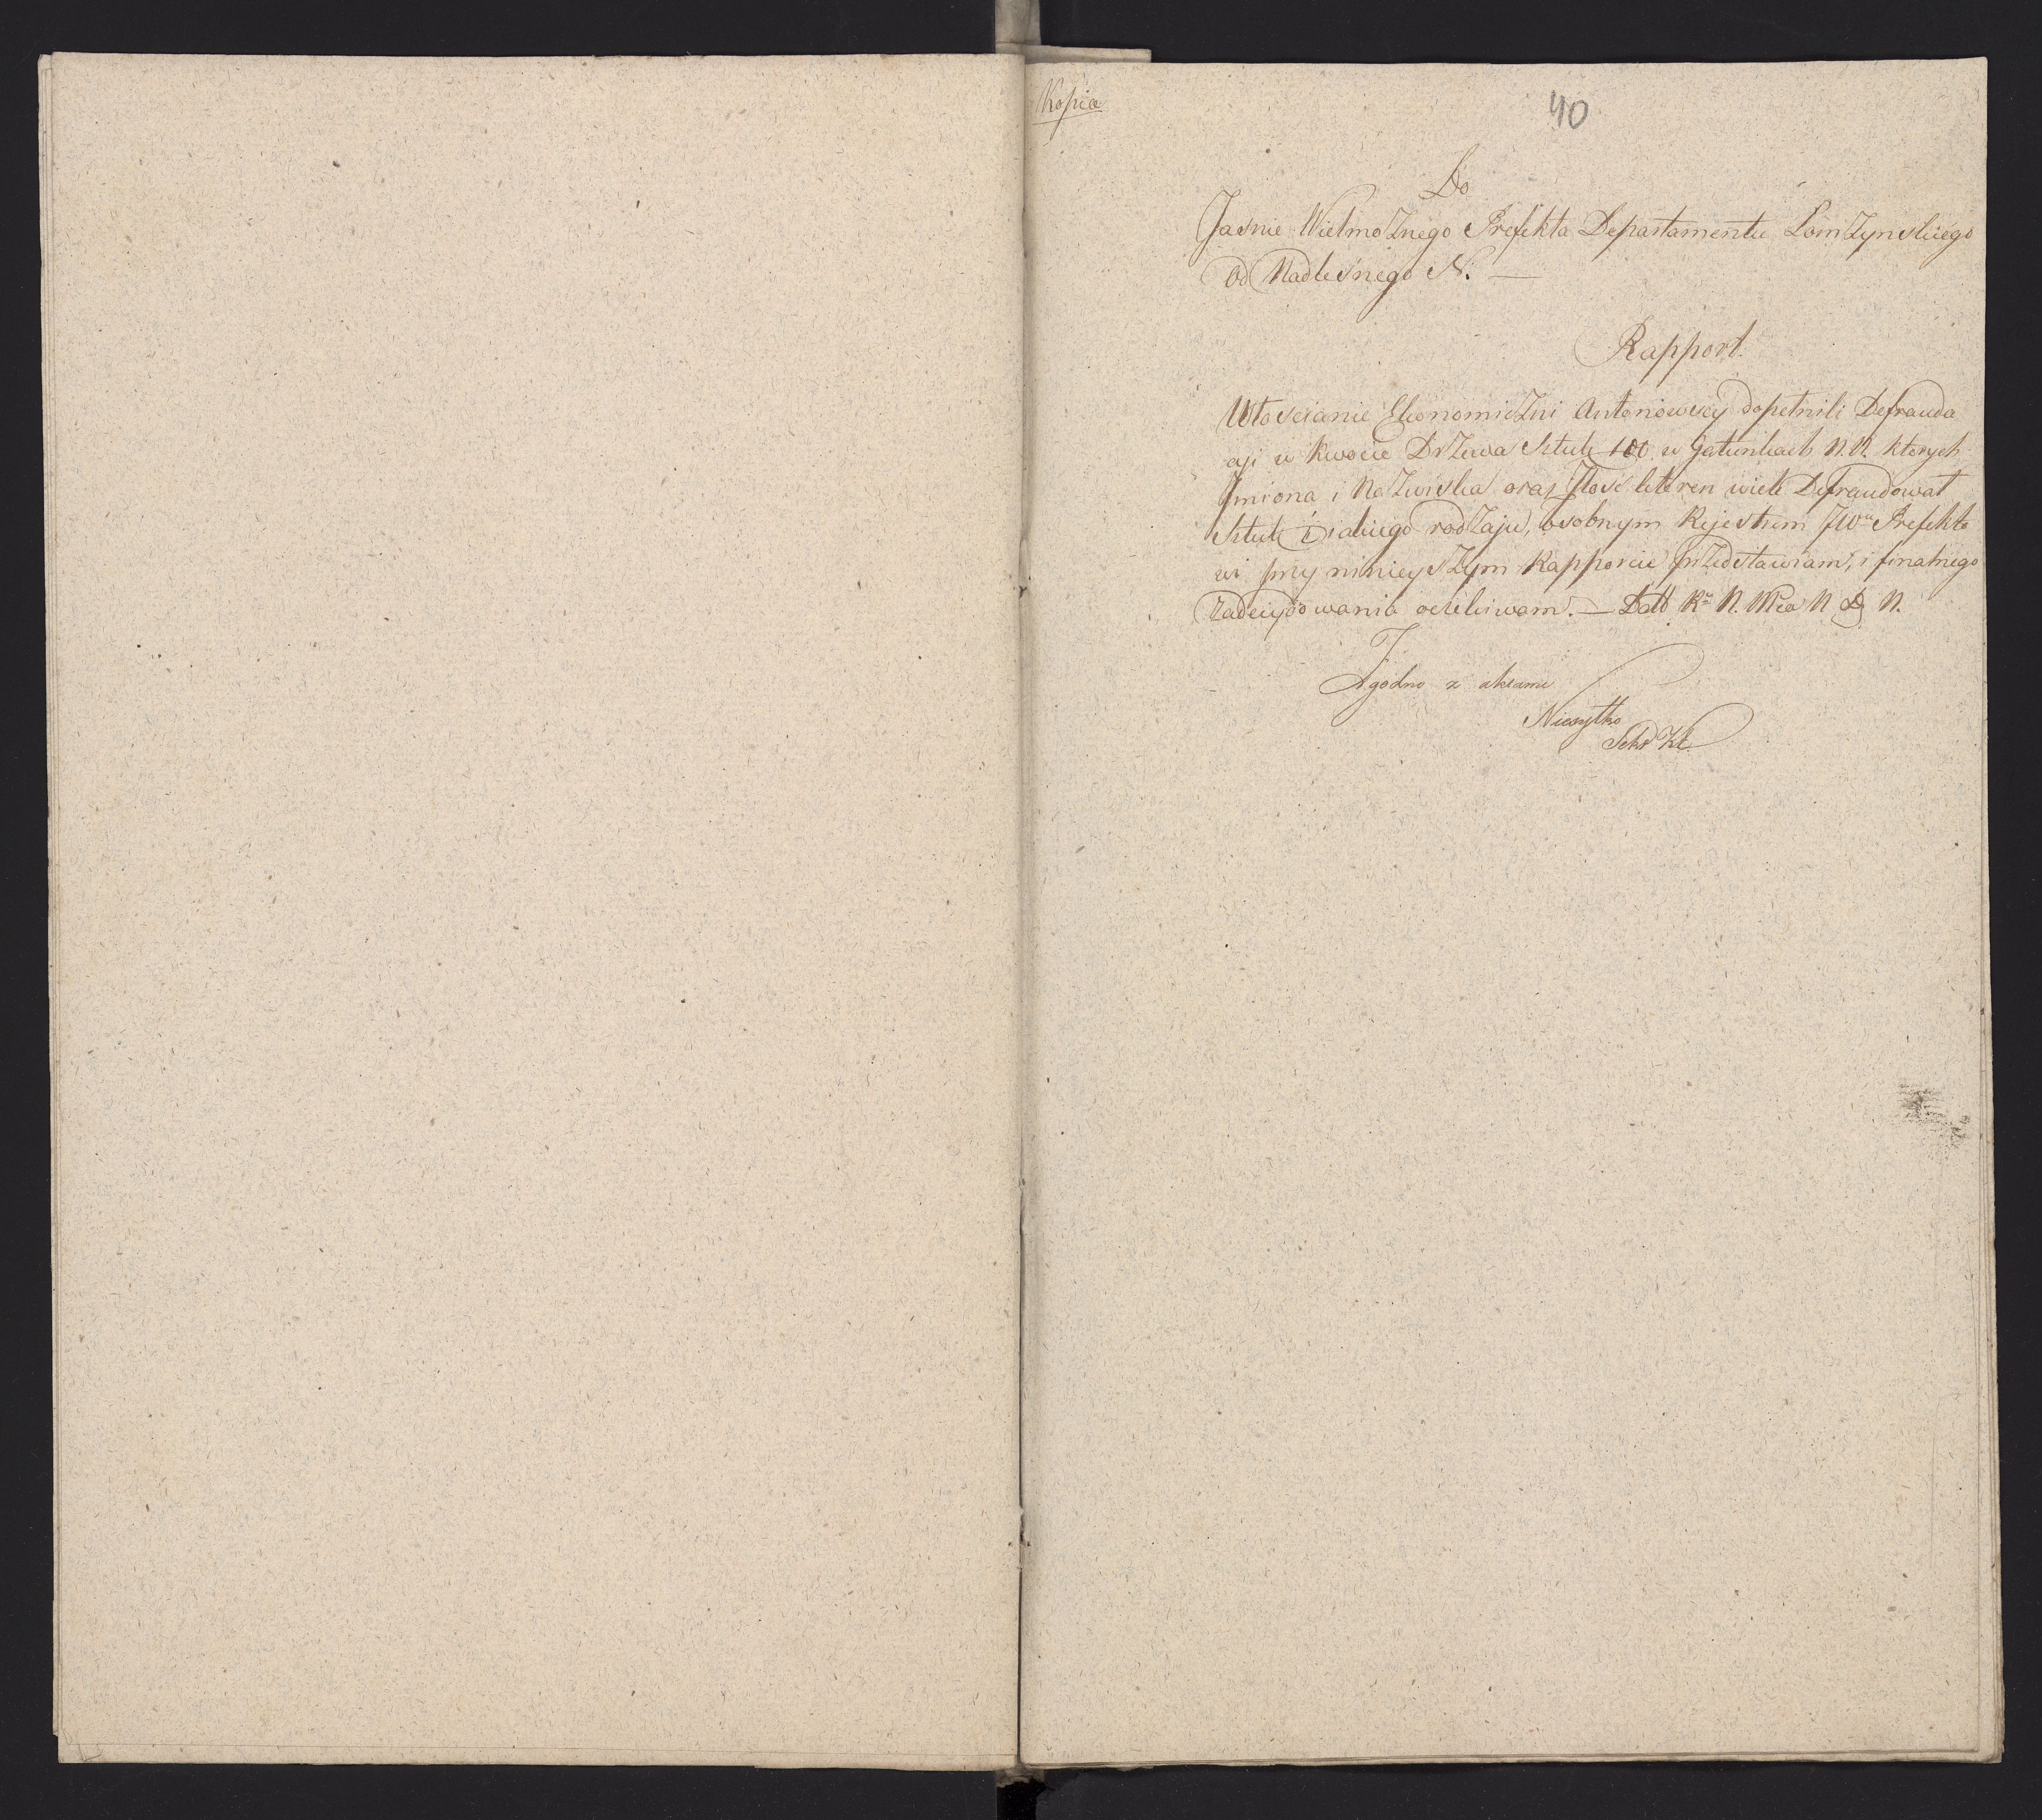 Kopia
40
Do
Jasnie Wielmożnego Prefekta Departamentu Łomżynskiego
od Nadlesnego N. —
Rapport.
Włoscianie Ekonomiczni Antoniowscy dopełnili Defrauda
cyi w kwocie Drzewa Sztuk 100 w Gatunkach N.N. ktorych
Jmiona i Nazwiska oraz Jlosc ktoren wiele Defraudował
Sztuk i iakiego rodzaju, osobnym Rejestrem JWu Prefekto
wi przy ninieyszym Rapporcie przedstawiam, i finalnego
zadecydowania oczekiwam. — Datt Ru N. Mca N D N.
Zgodno z aktami
Sekr